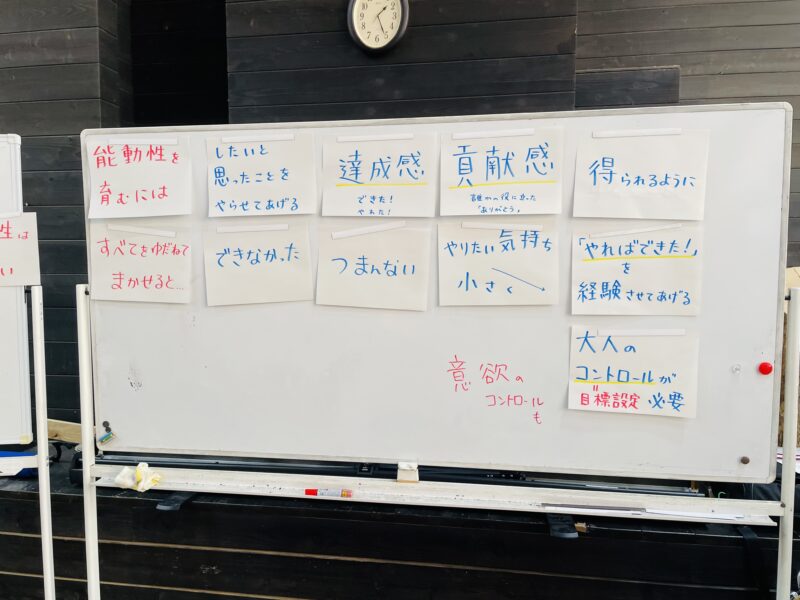 能動性を
育むには
したいと
思ったことを
やらせてあげる
達成感
できた！
やれた！
貢献感
誰かの役に立った
「ありがとう」
得られるように
すべてをゆだねて
まかせると…
できなかった
つまんない
やりたい気持ち
小さく
「やればできた！」
を
経験させてあげる
大人の
コントロールが
目標設定 必要
意欲の
コントロール
も
性は
い